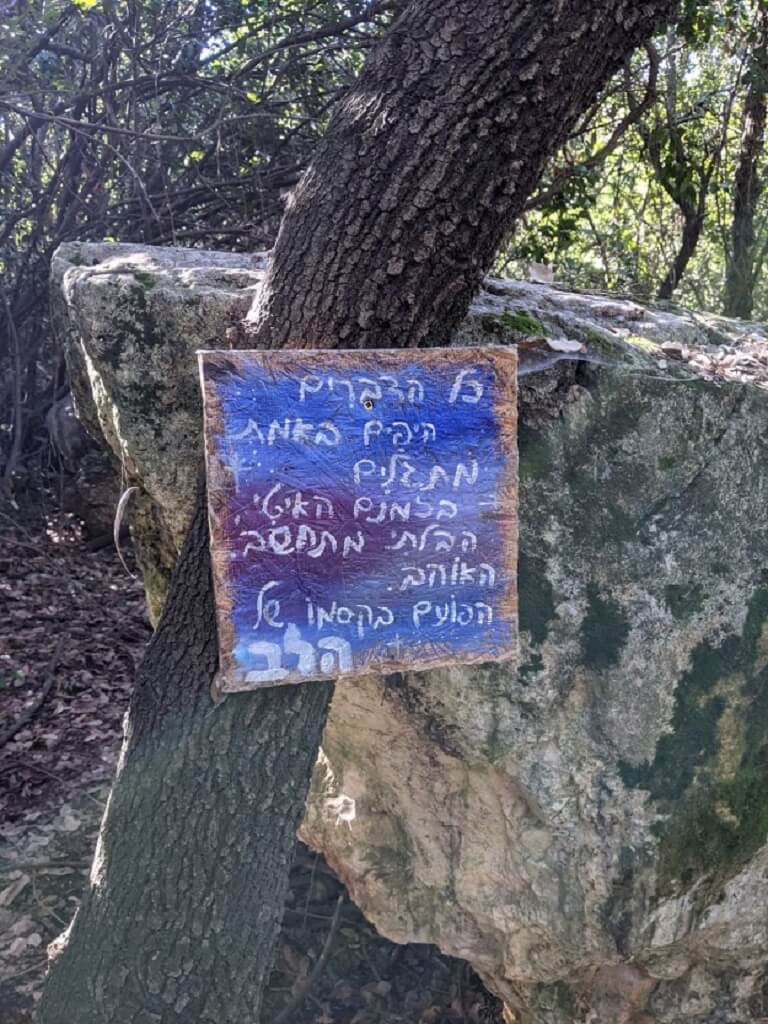 כל הדברים
היפים באמת
מתגלים
בזמנם האיטי,
הבלתי מתחשב,
האוהב.
הפועם בקסמו של
הלב